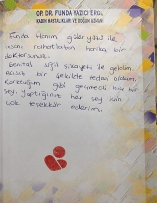 OP. DR. FUNDA YAZICI EROL
KADIN HASTALIKLARI VE DOĞUM UZMANI
Funda Hanım güler yüzlü ile
insanı rahatlatan harika bir
doktorsunuz.
Genital siğil şikayeti ile geldim.
Basit bir şekilde tedavi oldum.
Korktuğum gibi geçmedi hiç bir
şey. yaptığınız her şey için
çok teşekkür ederim.